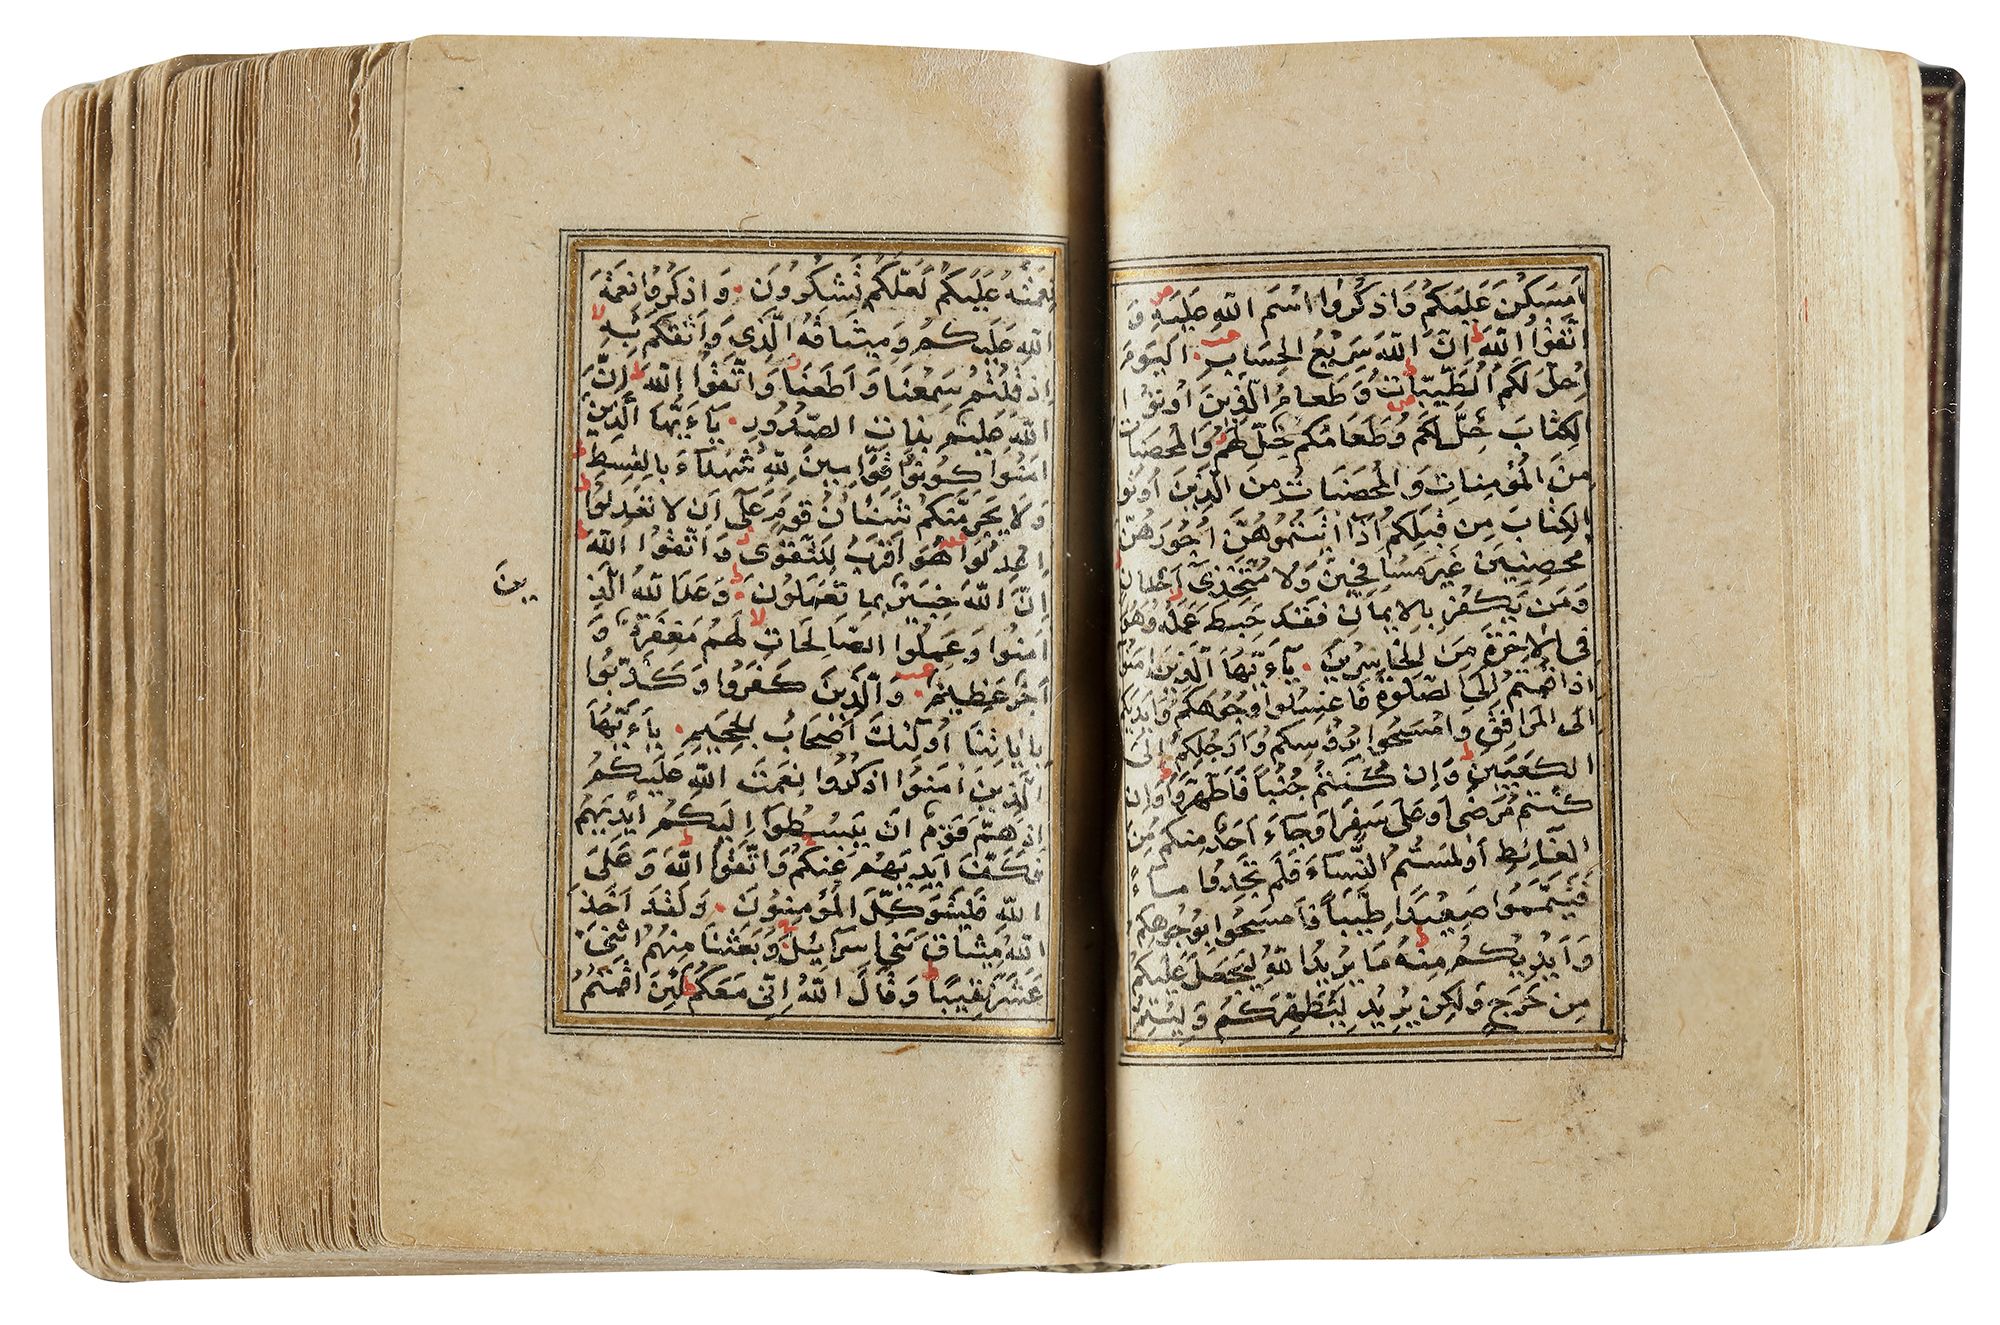 اَمْسَكْنَ عَلَيْكُمْ وَاذْكُرُوا اسْمَ اللّٰهِ عَلَيْهِ وَ
اتَّقُوا اللّٰهَ اِنَّ اللّٰهَ سَرِيعُ الْحِسَابِ اَلْيَوْمَ
اُحِلَّ لَكُمُ الطَّيِّبَاتُ وَطَعَامُ الَّذِينَ اُوتُوا
الْكِتَابَ حِلٌّ لَكُمْ وَطَعَامُكُمْ حِلٌّ لَهُمْ وَالْمُحْصَنَاتُ
مِنَ الْمُؤْمِنَاتِ وَالْمُحْصَنَاتُ مِنَ الَّذِينَ اُوتُوا
الْكِتَابَ مِنْ قَبْلِكُمْ اِذَا اٰتَيْتُمُوهُنَّ اُجُورَهُنَّ
مُحْصِنِينَ غَيْرَ مُسَافِحِينَ وَلَا مُتَّخِذِي اَخْدَانٍ
وَمَنْ يَكْفُرْ بِالْاِيمَانِ فَقَدْ حَبِطَ عَمَلُهُ وَهُوَ
فِي الْاٰخِرَةِ مِنَ الْخَاسِرِينَ يَآءَيُّهَا الَّذِينَ اٰمَنُوا
اِذَا قُمْتُمْ اِلَى الصَّلٰوةِ فَاغْسِلُوا وُجُوهَكُمْ وَاَيْدِيَكُمْ
اِلَى الْمَرَافِقِ وَامْسَحُوا بِرُؤُسِكُمْ وَاَرْجُلَكُمْ اِلَى
الْكَعْبَيْنِ وَاِنْ كُنْتُمْ جُنُبًا فَاطَّهَّرُوا وَاِنْ
كُنْتُمْ مَرْضٰى اَوْ عَلٰى سَفَرٍ اَوْ جَآءَ اَحَدٌ مِنْكُمْ مِنَ
الْغَائِطِ اَوْ لٰمَسْتُمُ النِّسَآءَ فَلَمْ تَجِدُوا مَآءً
فَتَيَمَّمُوا صَعِيدًا طَيِّبًا فَامْسَحُوا بِوُجُوهِكُمْ
وَاَيْدِيكُمْ مِنْهُ مَا يُرِيدُ اللّٰهُ لِيَجْعَلَ عَلَيْكُمْ
مِنْ حَرَجٍ وَلٰكِنْ يُرِيدُ لِيُطَهِّرَكُمْ وَلِيُتِمَّ
نِعْمَتَهُ عَلَيْكُمْ لَعَلَّكُمْ تَشْكُرُونَ وَاذْكُرُوا نِعْمَةَ
اللّٰهِ عَلَيْكُمْ وَمِيثَاقَهُ الَّذِي وَاثَقَكُمْ بِهِ
اِذْ قُلْتُمْ سَمِعْنَا وَاَطَعْنَا وَاتَّقُوا اللّٰهَ اِنَّ
اللّٰهَ عَلِيمٌ بِذَاتِ الصُّدُورِ يَآءَيُّهَا الَّذِينَ
اٰمَنُوا كُونُوا قَوَّامِينَ لِلّٰهِ شُهَدَآءَ بِالْقِسْطِ
وَلَا يَجْرِمَنَّكُمْ شَنَاٰنُ قَوْمٍ عَلٰى اَنْ لَا تَعْدِلُوا
اِعْدِلُوا هُوَ اَقْرَبُ لِلتَّقْوٰى وَاتَّقُوا اللّٰهَ
اِنَّ اللّٰهَ خَبِيرٌ بِمَا تَعْمَلُونَ وَعَدَ اللّٰهُ الَّذِ
ينَ
اٰمَنُوا وَعَمِلُوا الصَّالِحَاتِ لَهُمْ مَغْفِرَةٌ وَ
اَجْرٌ عَظِيمٌ وَالَّذِينَ كَفَرُوا وَكَذَّبُوا
بِاٰيَاتِنَا اُولٰئِكَ اَصْحَابُ الْجَحِيمِ يَآءَيُّهَا
الَّذِينَ اٰمَنُوا اذْكُرُوا نِعْمَتَ اللّٰهِ عَلَيْكُمْ
اِذْ هَمَّ قَوْمٌ اَنْ يَبْسُطُوا اِلَيْكُمْ اَيْدِيَهُمْ
فَكَفَّ اَيْدِيَهُمْ عَنْكُمْ وَاتَّقُوا اللّٰهَ وَعَلَى
اللّٰهِ فَلْيَتَوَكَّلِ الْمُؤْمِنُونَ وَلَقَدْ اَخَذَ
اللّٰهُ مِيثَاقَ بَنِي اِسْرَائِيلَ وَبَعَثْنَا مِنْهُمُ اثْنَيْ
عَشَرَ نَقِيبًا وَقَالَ اللّٰهُ اِنِّي مَعَكُمْ لَئِنْ اَقَمْتُمُ